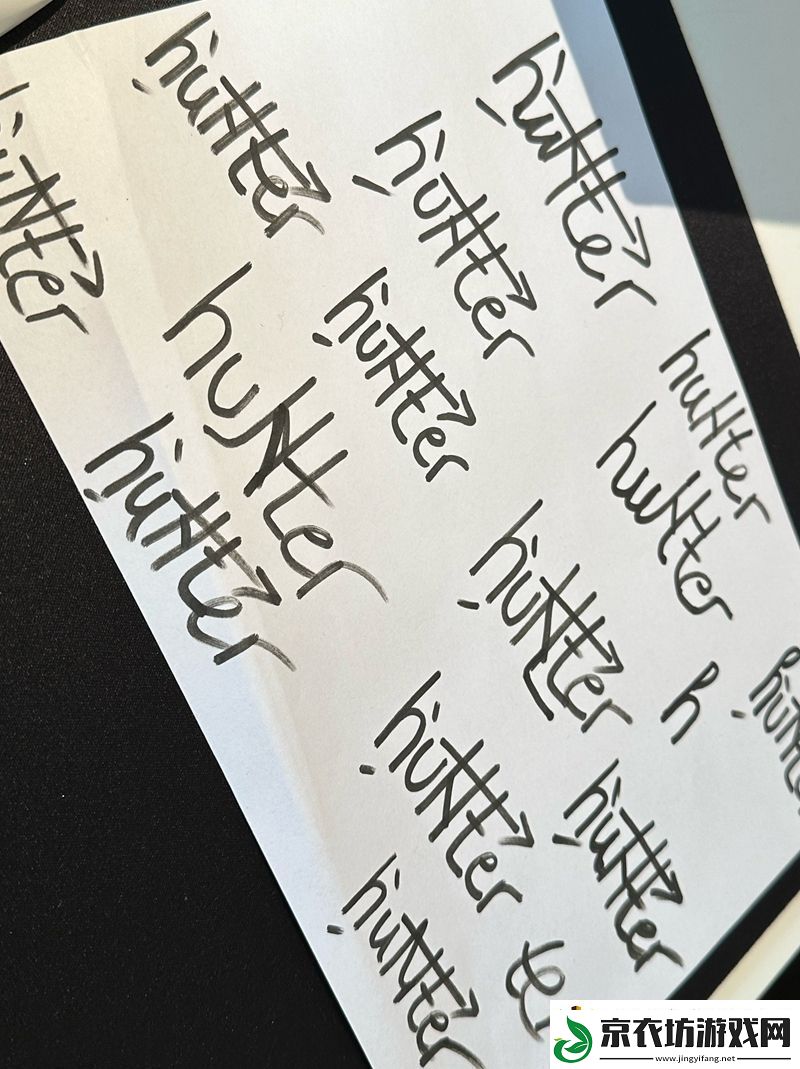 hunter
hunter
hunter
hunter
hunter
hunter
hunter
hunter
hunter
hunter
hunter
h
hunter
hunter
hunter
ter
京衣坊游戏网
www.jingyifang.net